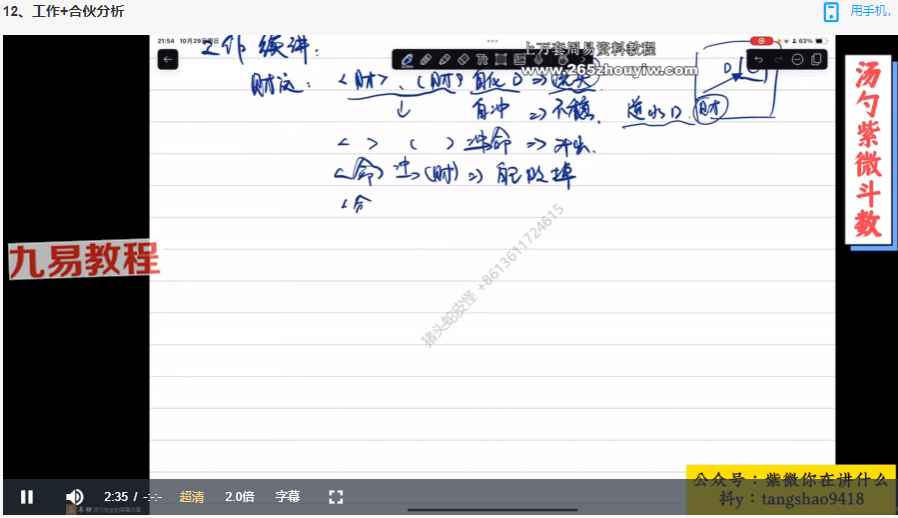 12、工作+合伙分析
用手机,
21:54 10月29日周日
63%
上万套周易资料教程
www.265zhouyiw.com
工作续讲：
财运：<财>、(财) 自化D => 流失
自冲 => 不稳. 逆水D.财
< > ( ) 冲命 => 冲出.
<命> 冲 (财) => 自己败掉
<命
猪头蛇皮怪 +8613611724615
九易教程
汤勺紫微斗数
2:35 / -:-:- 超清 2.0倍 字幕
公众号：紫微你在讲什么
抖y：tangshao9418